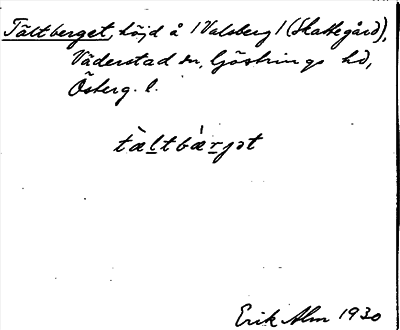 Tältberget, höjd å 1 Valsberg 1 (Skattegård),
Väderstad sn, Göstrings hd,
Österg. l.
tæ̀ltbæ̀rjət
Erik Alm 1930